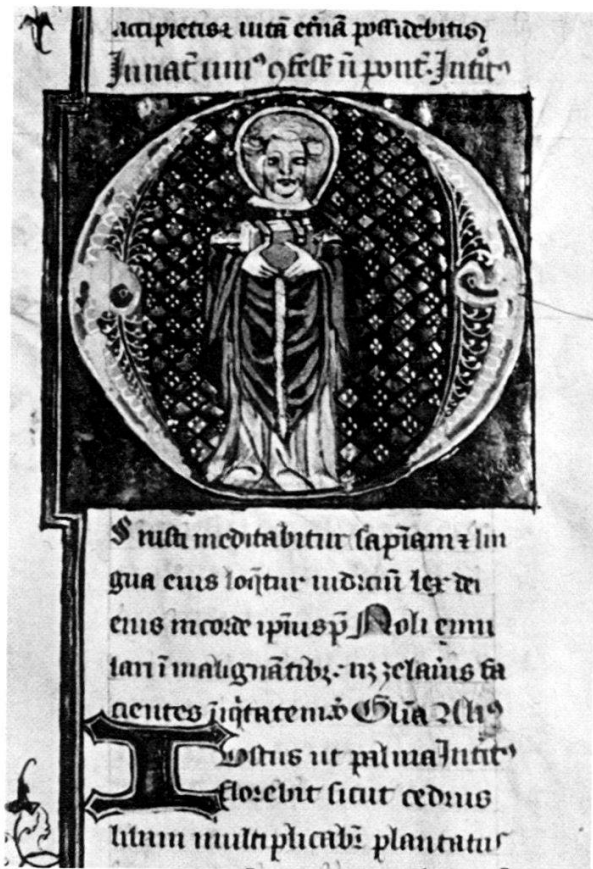 accipietis ⁊ uitā et̄nā possidebitis
In nat̄ uniꝰ ꝯfess̄ n̄ pont̄. Intͦitꝰ
O
S iusti meditabitur sap̄iam ⁊ lin
gua eius loq̄tur iudiciū lex dei
eius in corde ip̄ius p̄ Noli emu
lari ī malignātibꝫ. nꝫ zelaūis fa
cientes īiq̇tatem. Gl̄ia Aliꝰ
Iustus ut palma Intͦitꝰ
florebit sicut cedrus
libani multiplicabit̄ plantatus